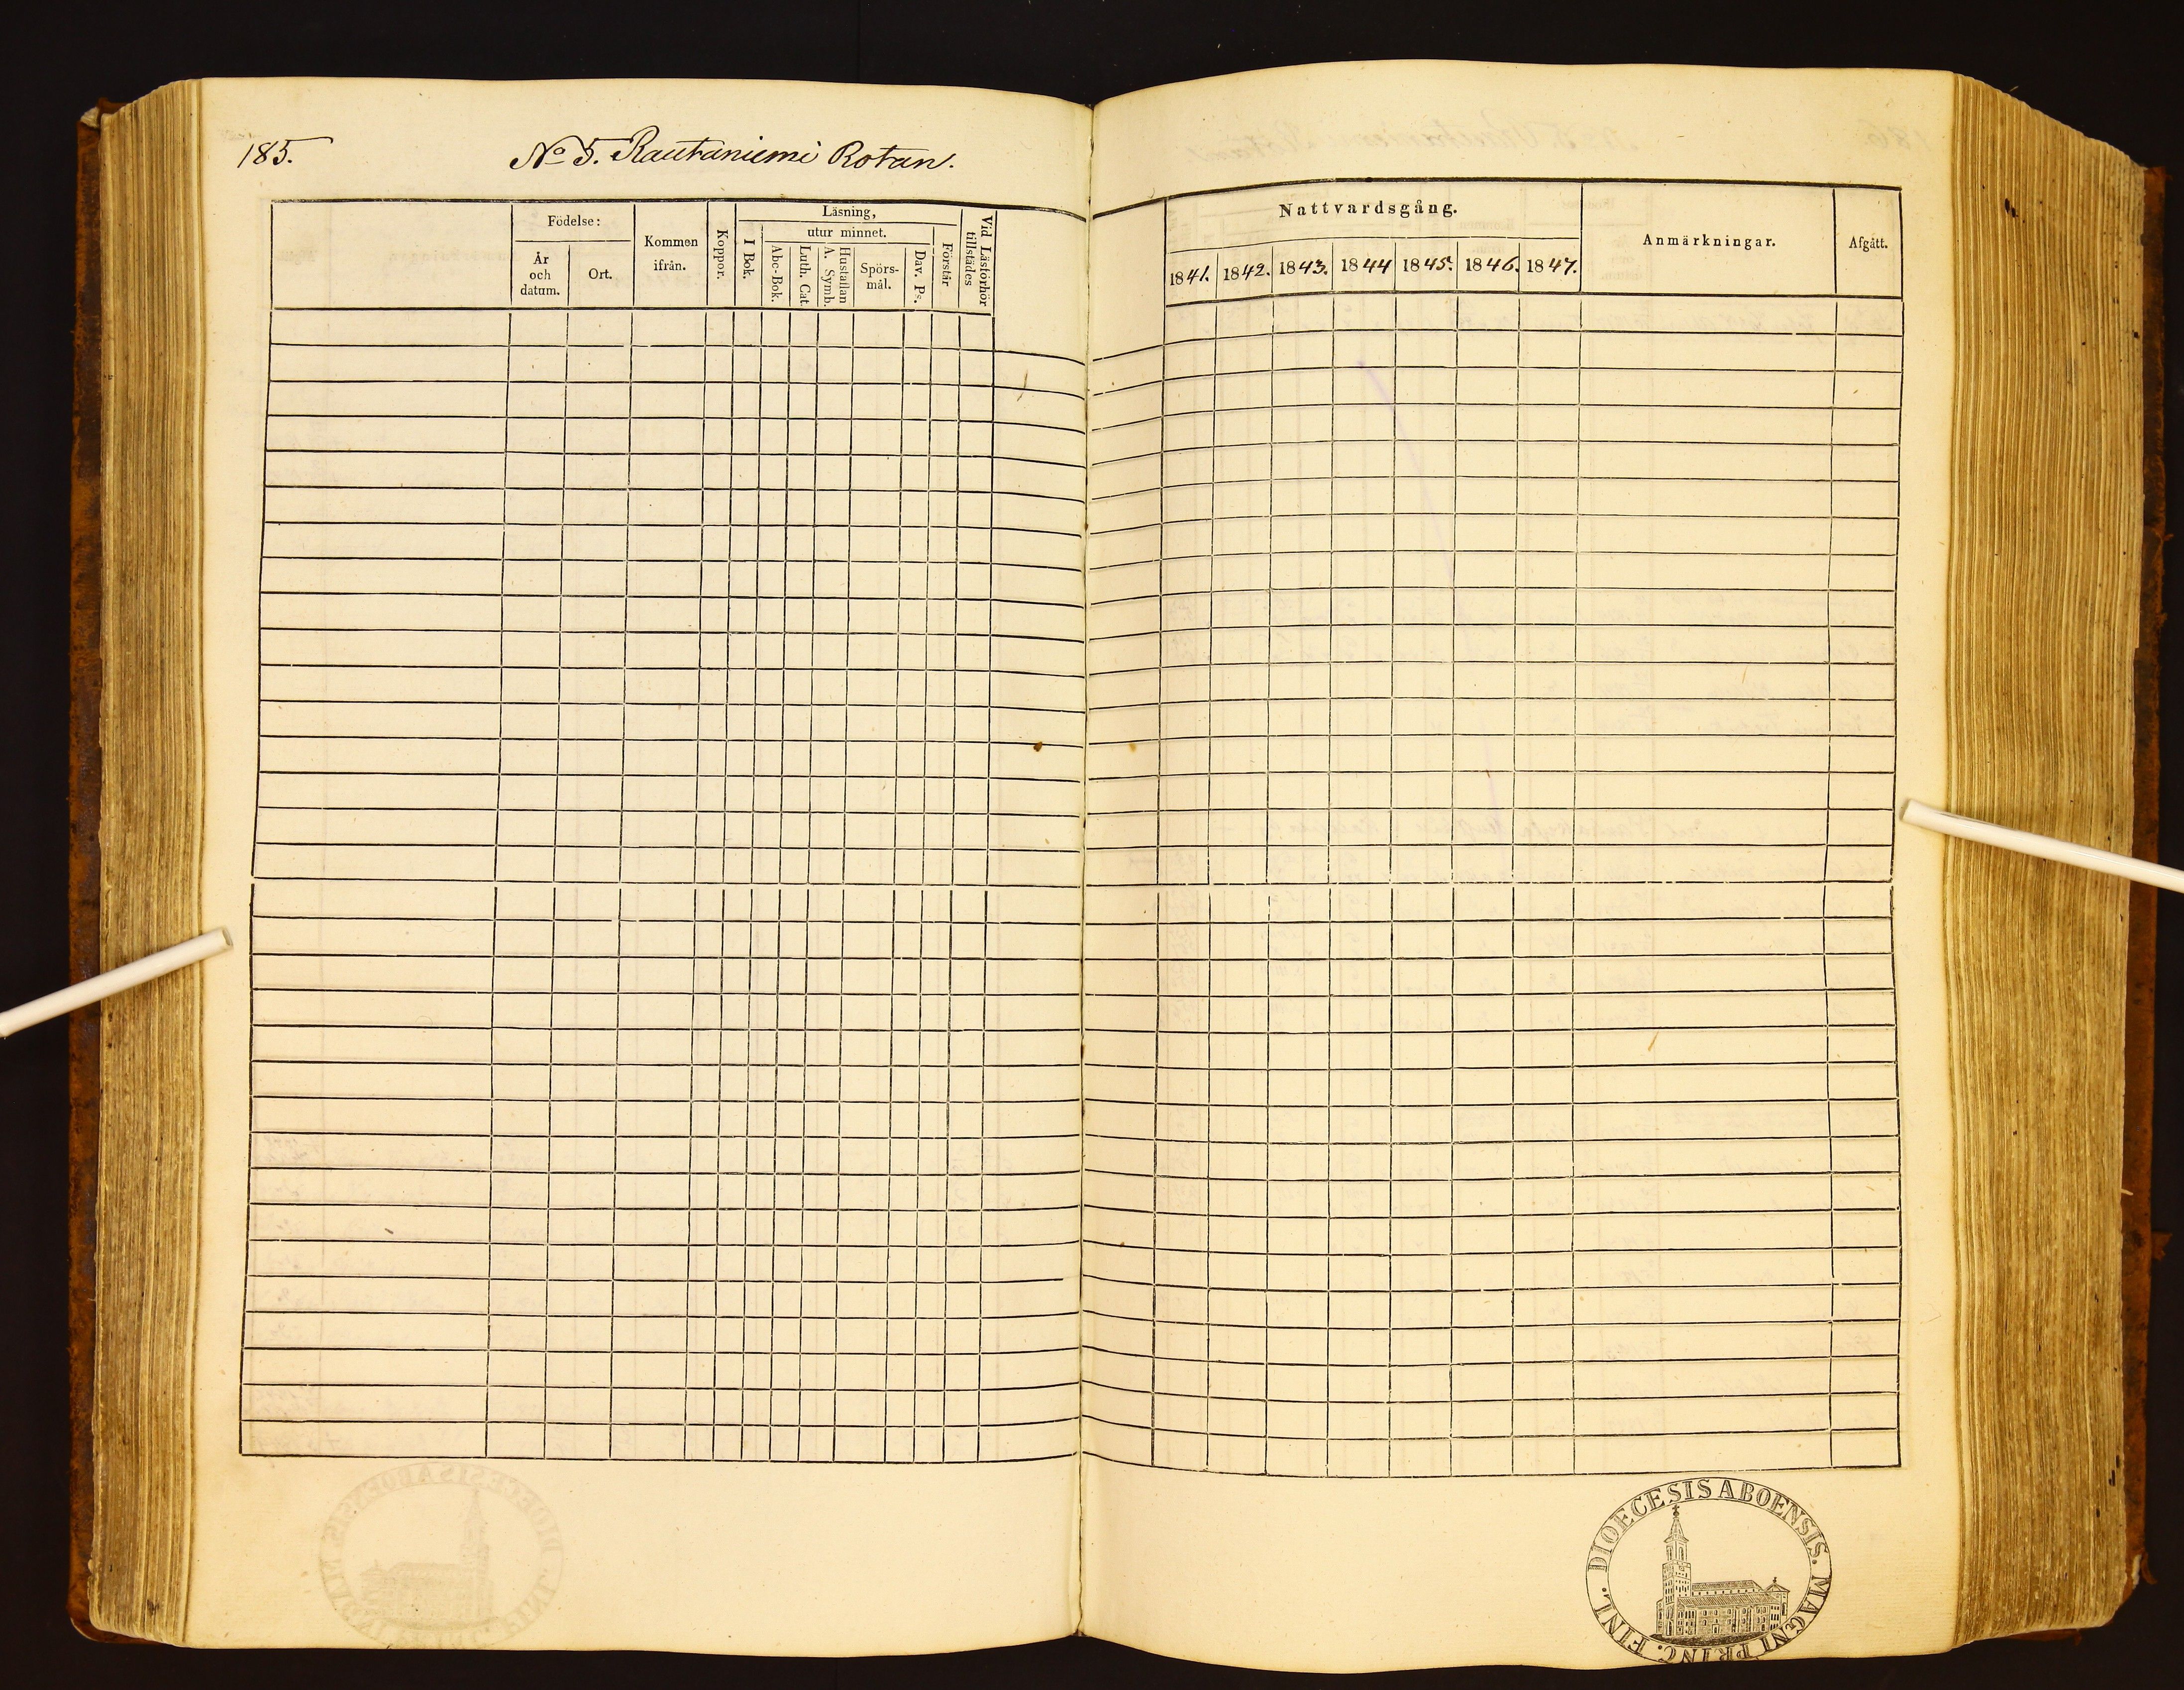 185.
No 5. Rautaniemi Rotan.
Födelse:
År och datum.
Ort.
Kommen ifrån.
Koppor.
Läsning,
I Bok.
utur minnet.
Abc-Bok.
Luth. Cat.
Hustaflan A. Symb.
Spörs-mål.
Dav. Ps.
Förstår
Vid Läsförhör tillstädes
Nattvardsgång.
1841. 1842. 1843. 1844 1845. 1846. 1847.
Anmärkningar.
Afgått.
DIOECESIS ABOENSIS. MAGNI PRINC. FINL.